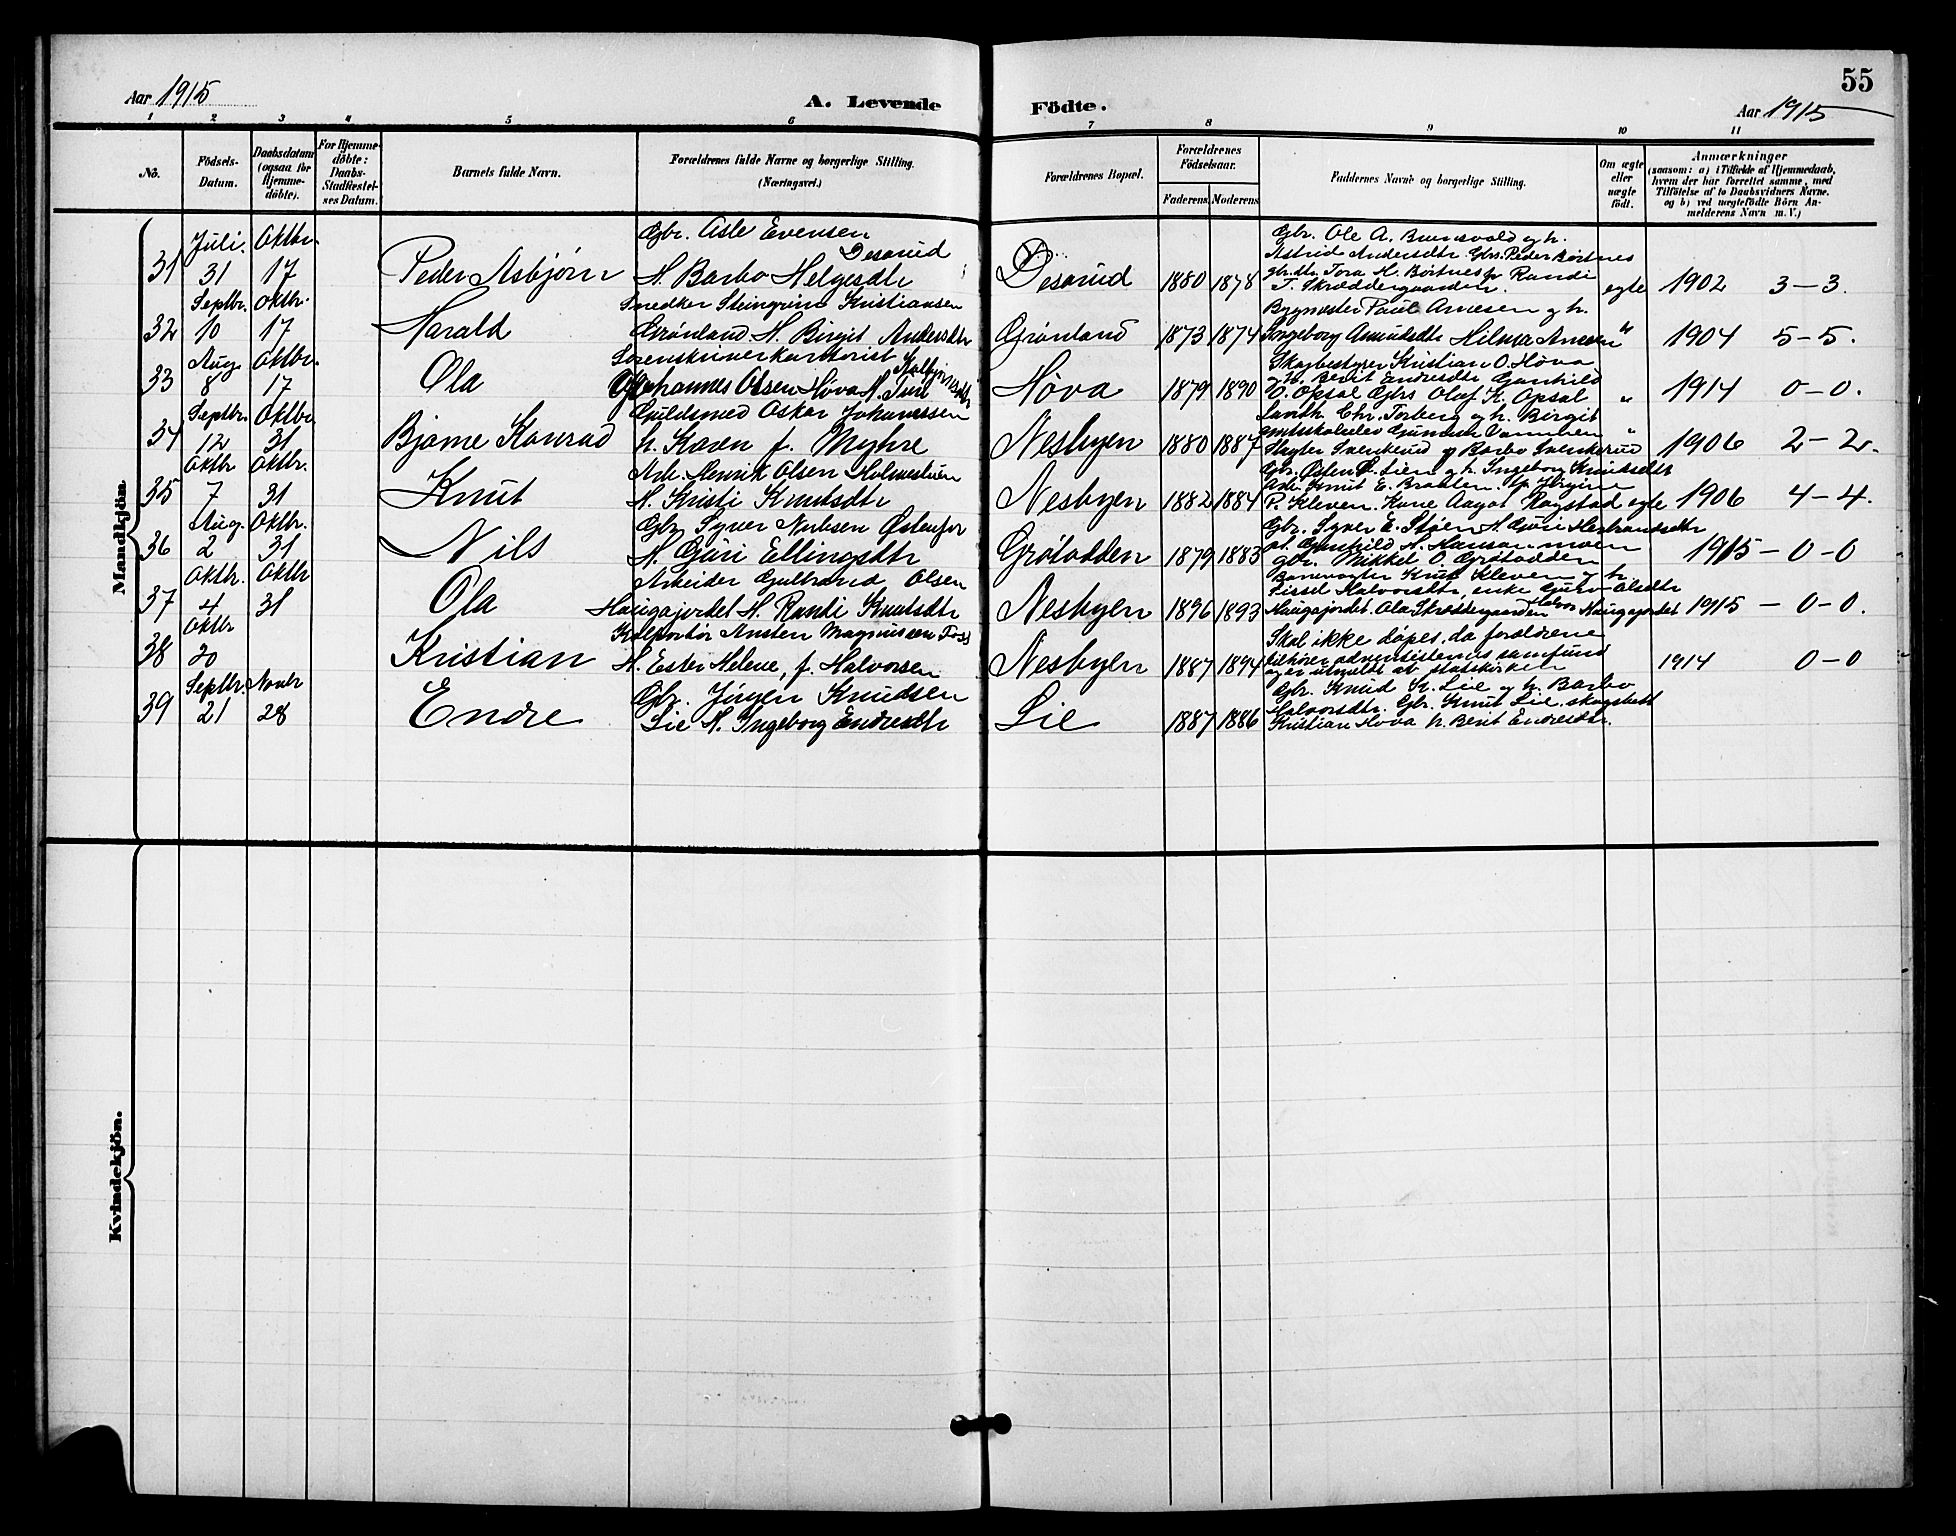 55
Aar 1915
A. Levende Födte.
Aar 1915
1 2 3 4 5 6 7 8 9 10 11
No.
Födsels-Datum.
Daabsdatum (ogsaa for Hjemmedöbte).
For Hjemmedöbte: Daabs-Stadfæstelses Datum.
Barnets fulde Navn.
Forældrenes fulde Navne og borgerlige Stilling.
(Næringsvei.)
Forældrenes Bopæl.
Forældrenes Födselsaar.
Faderens. Moderens.
Faddernes Navne og borgerlige Stilling.
Om ægte eller uægte födt.
Anmærkninger
(saasom: a) i Tilfælde af Hjemmedaab, hvem der har forrettet samme, med Tilföielse af to Daabsvidners Navne, og b) ved uægtefödte Börn Anmelderens Navn m. V.)
Mandkjön
31 Juli 31 Oktbr. 17 Peder Asbjørn
Gbr. Asle Evensen
Desarud
H. Barbo Helgesdtr
Desarud 1880 1878
Gbr. Ole A. Bunsvold og h.
Astrid Andersdtr. Gbrs. Peder Børtnes
gbr.dtr. Tora H. Børtnes Randi
T. Skræddergaarden.
egte 1902 3–3.
32 Septbr. 10 Oktbr. 17 Harald
Snedker Steingrim Kristiansen
Grønland H. Birgit Andersdtr
Grønland 1873 1874
Bygmester Paul Arnesen og h.
Ingeborg Amundsdtr Hilma Arnesen
" 1904 5–5.
33 Aug. 8 Oktbr. 17 Ola
Sorenskriverkontorist
Johannes Olsen Høva H. Turi
Høva 1879 1890
Skogbestyrer Kristian O. Høva
og h. Berit Endresdtr Gunhild
O. Opsal Gbrs Olaf K. Opsal
" 1914 0–0.
34 Septbr. 12 Oktbr 31 Bjarne Konrad
Guldsmed Oskar Johannessen
h. Karen f. Myhre
Nesbyen 1880 1887
Landh. Chr. Torberg og h. Birgit
Slagter Svenkerud og Barbo Svenkerud
" 1906 2–2.
35 Oktbr 7 Oktbr. 31 Knut
Arb. Henrik Olsen Holmestuen
H. Kristi Knutsdtr
Nesbyen 1882 1884
Gbr. Østen Lien og h. Ingeborg Knutsdtr
Arb. Knut E. Braaten. Jørgine
P. Kleven. Kone Aagot Ragstad
egte 1906 4–4.
36 Aug. 2 Oktbr. 31 Nils
Gbr. Syver Nerbsen Østenfor
H. Guri Ellingsdtr
Grøtodden 1879 1883
Gbr. Syver E. Støen H. Guri Herbrandsdtr
Gunhild H. Hansenmoen
gbr. Mikkel O. Grøtodden
1915 – 0–0
37 Oktbr. 4 Oktbr 31 Ola
Arbeider Gulbrand Olsen
Haugajordet H. Randi Knutsdtr
Nesbyen 1896 1893
Banevogter Knut Kleven og h.
Sissel Halvorsdtr, enke Guro Olsdtr
Haugajordet. Ola Skræddergaarden Halvor Haugajordet
1915 – 0–0.
38 Oktbr 20 Kristian
Kolportør Ansten Magnussen Foss
H. Ester Helene, f. Halvorsen
Nesbyen 1887 1894
Skal ikke døpes, da forældrene
tilhører adventisternes samfund
og er utmeldt av statskirken
1914 0–0
39 Septbr. 21 Novbr 28 Endre
Gbr. Jørgen Knudsen
Lie H. Ingeborg Endresdtr
Lie 1887 1886
Gbr. Knud K. Lie og h. Barbo
Halvorsdtr. Gbr. Knut Lie. skogsbest
Kristian Hova h. Berit Endresdtr.
Kvindekjön.